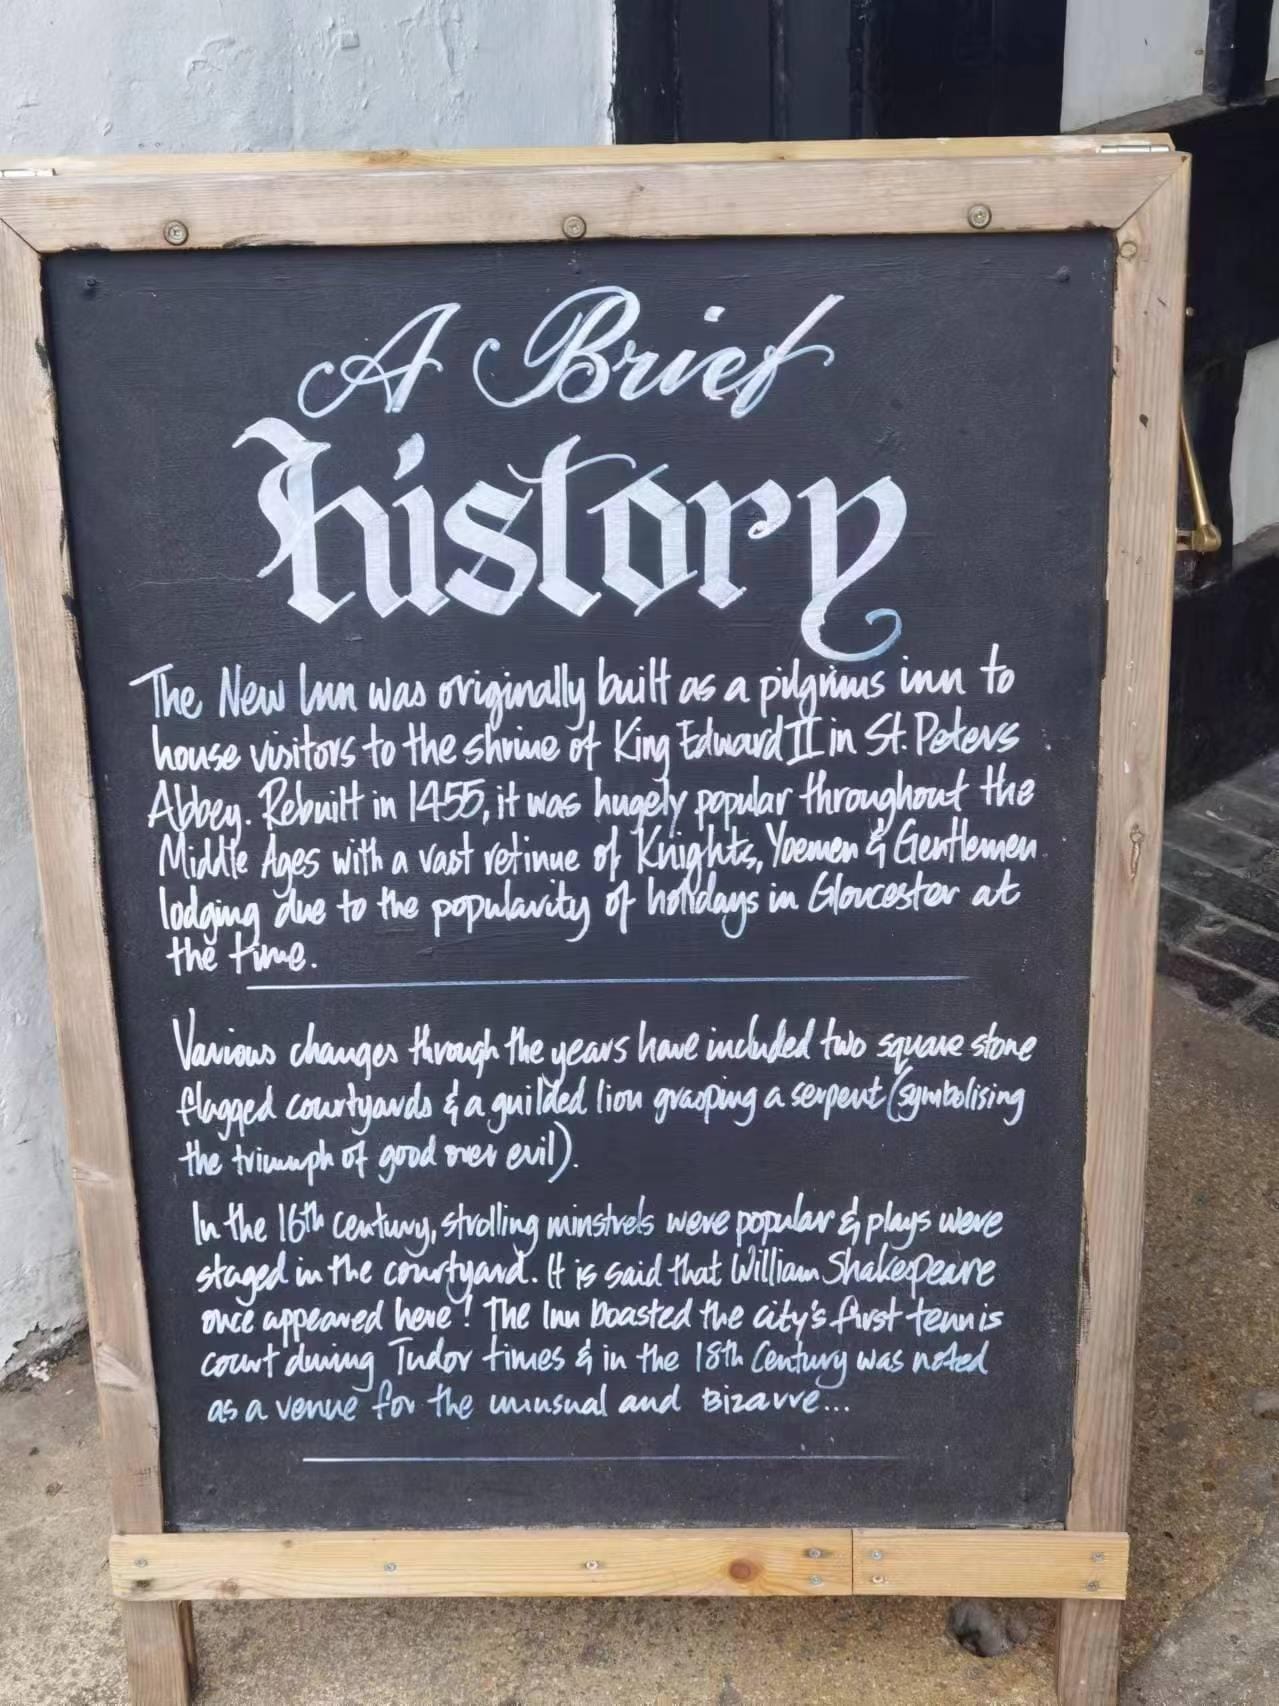 A Brief
history
The New Inn was originally built as a pilgrims inn to
house visitors to the shrine of King Edward II in St. Peters
Abbey. Rebuilt in 1455, it was hugely popular throughout the
Middle Ages with a vast retinue of Knights, Yoemen & Gentlemen
lodging due to the popularity of holidays in Gloucester at
the time.
Various changes through the years have included two square stone
flagged courtyards & a guilded lion grasping a serpent (symbolising
the triumph of good over evil).
In the 16th century, strolling minstrels were popular & plays were
staged in the courtyard. It is said that William Shakespeare
once appeared here! The Inn boasted the city's first tennis
court during Tudor times & in the 18th Century was noted
as a venue for the unusual and Bizarre...